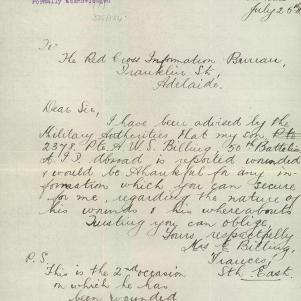 Formally acknowledged
July 26th
To
The Red Cross Information Bureau,
Franklin St,
Adelaide.
Dear Sir,
I have been advised by the
Military Authorities that my son Pte
2378. Pte A. W. S. Billing, 50th Battalion
A.I.F. Abroad is reported wounded
& would be thankful for any in-
formation which you can secure
for me, regarding the nature of
his wounds & his whereabouts
Trusting you can oblige
Yours respectfully
Mrs E Billing,
Frances,
Sth East.
P.S.
This is the 2nd occasion
on which he has
been wounded